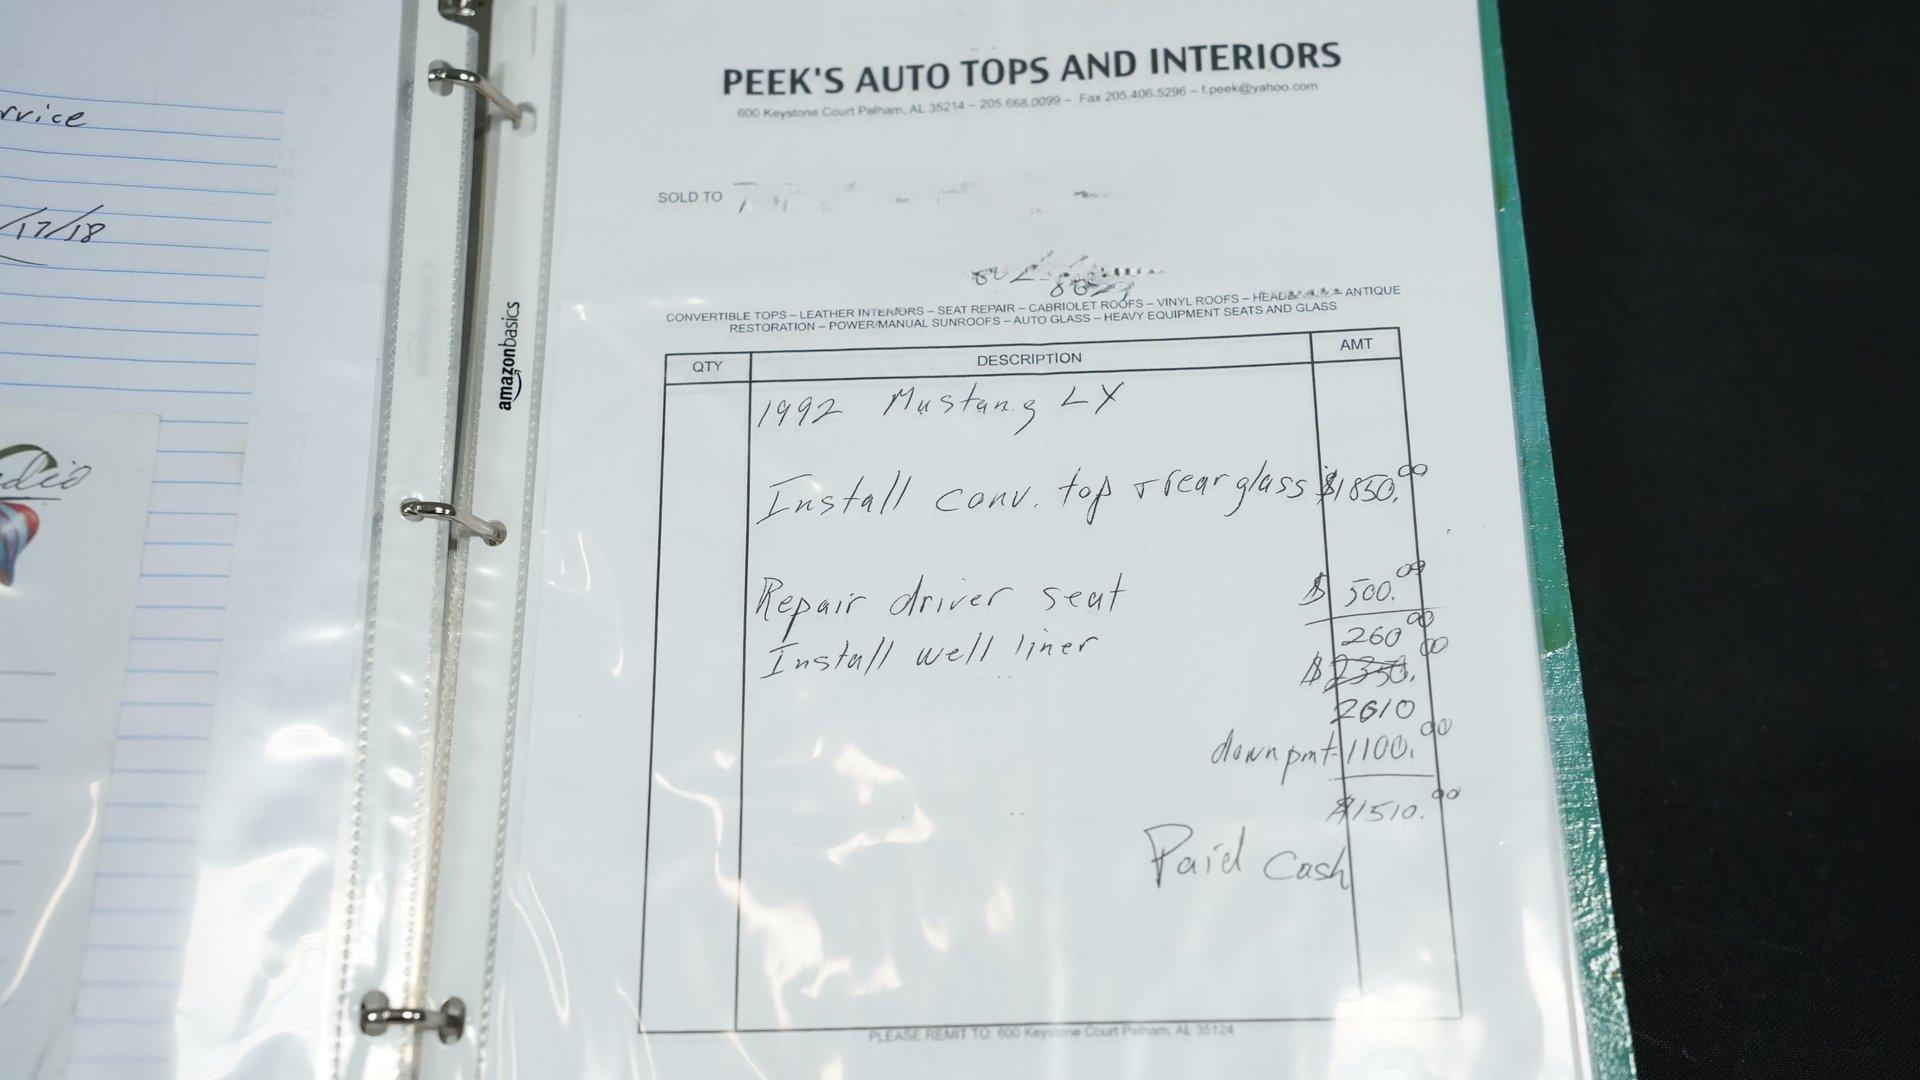 rvice
/17/18
dio
amazonbasics
PEEK'S AUTO TOPS AND INTERIORS
600 Keystone Court Pelham, AL 35214 – 205.668.0099 – Fax 205.406.5296 – f.peek@yahoo.com
SOLD TO
CONVERTIBLE TOPS – LEATHER INTERIORS – SEAT REPAIR – CABRIOLET ROOFS – VINYL ROOFS – ANTIQUE
RESTORATION – POWER/MANUAL SUNROOFS – AUTO GLASS – HEAVY EQUIPMENT SEATS AND GLASS
QTY DESCRIPTION AMT
1992 Mustang LX
Install conv. top + rear glass $1850.00
Repair driver seat $ 500.00
Install well liner 260.00
$2350.00
2610
down pmt- 1100.00
$1510.00
Paid Cash
PLEASE REMIT TO: 600 Keystone Court Pelham, AL 35124